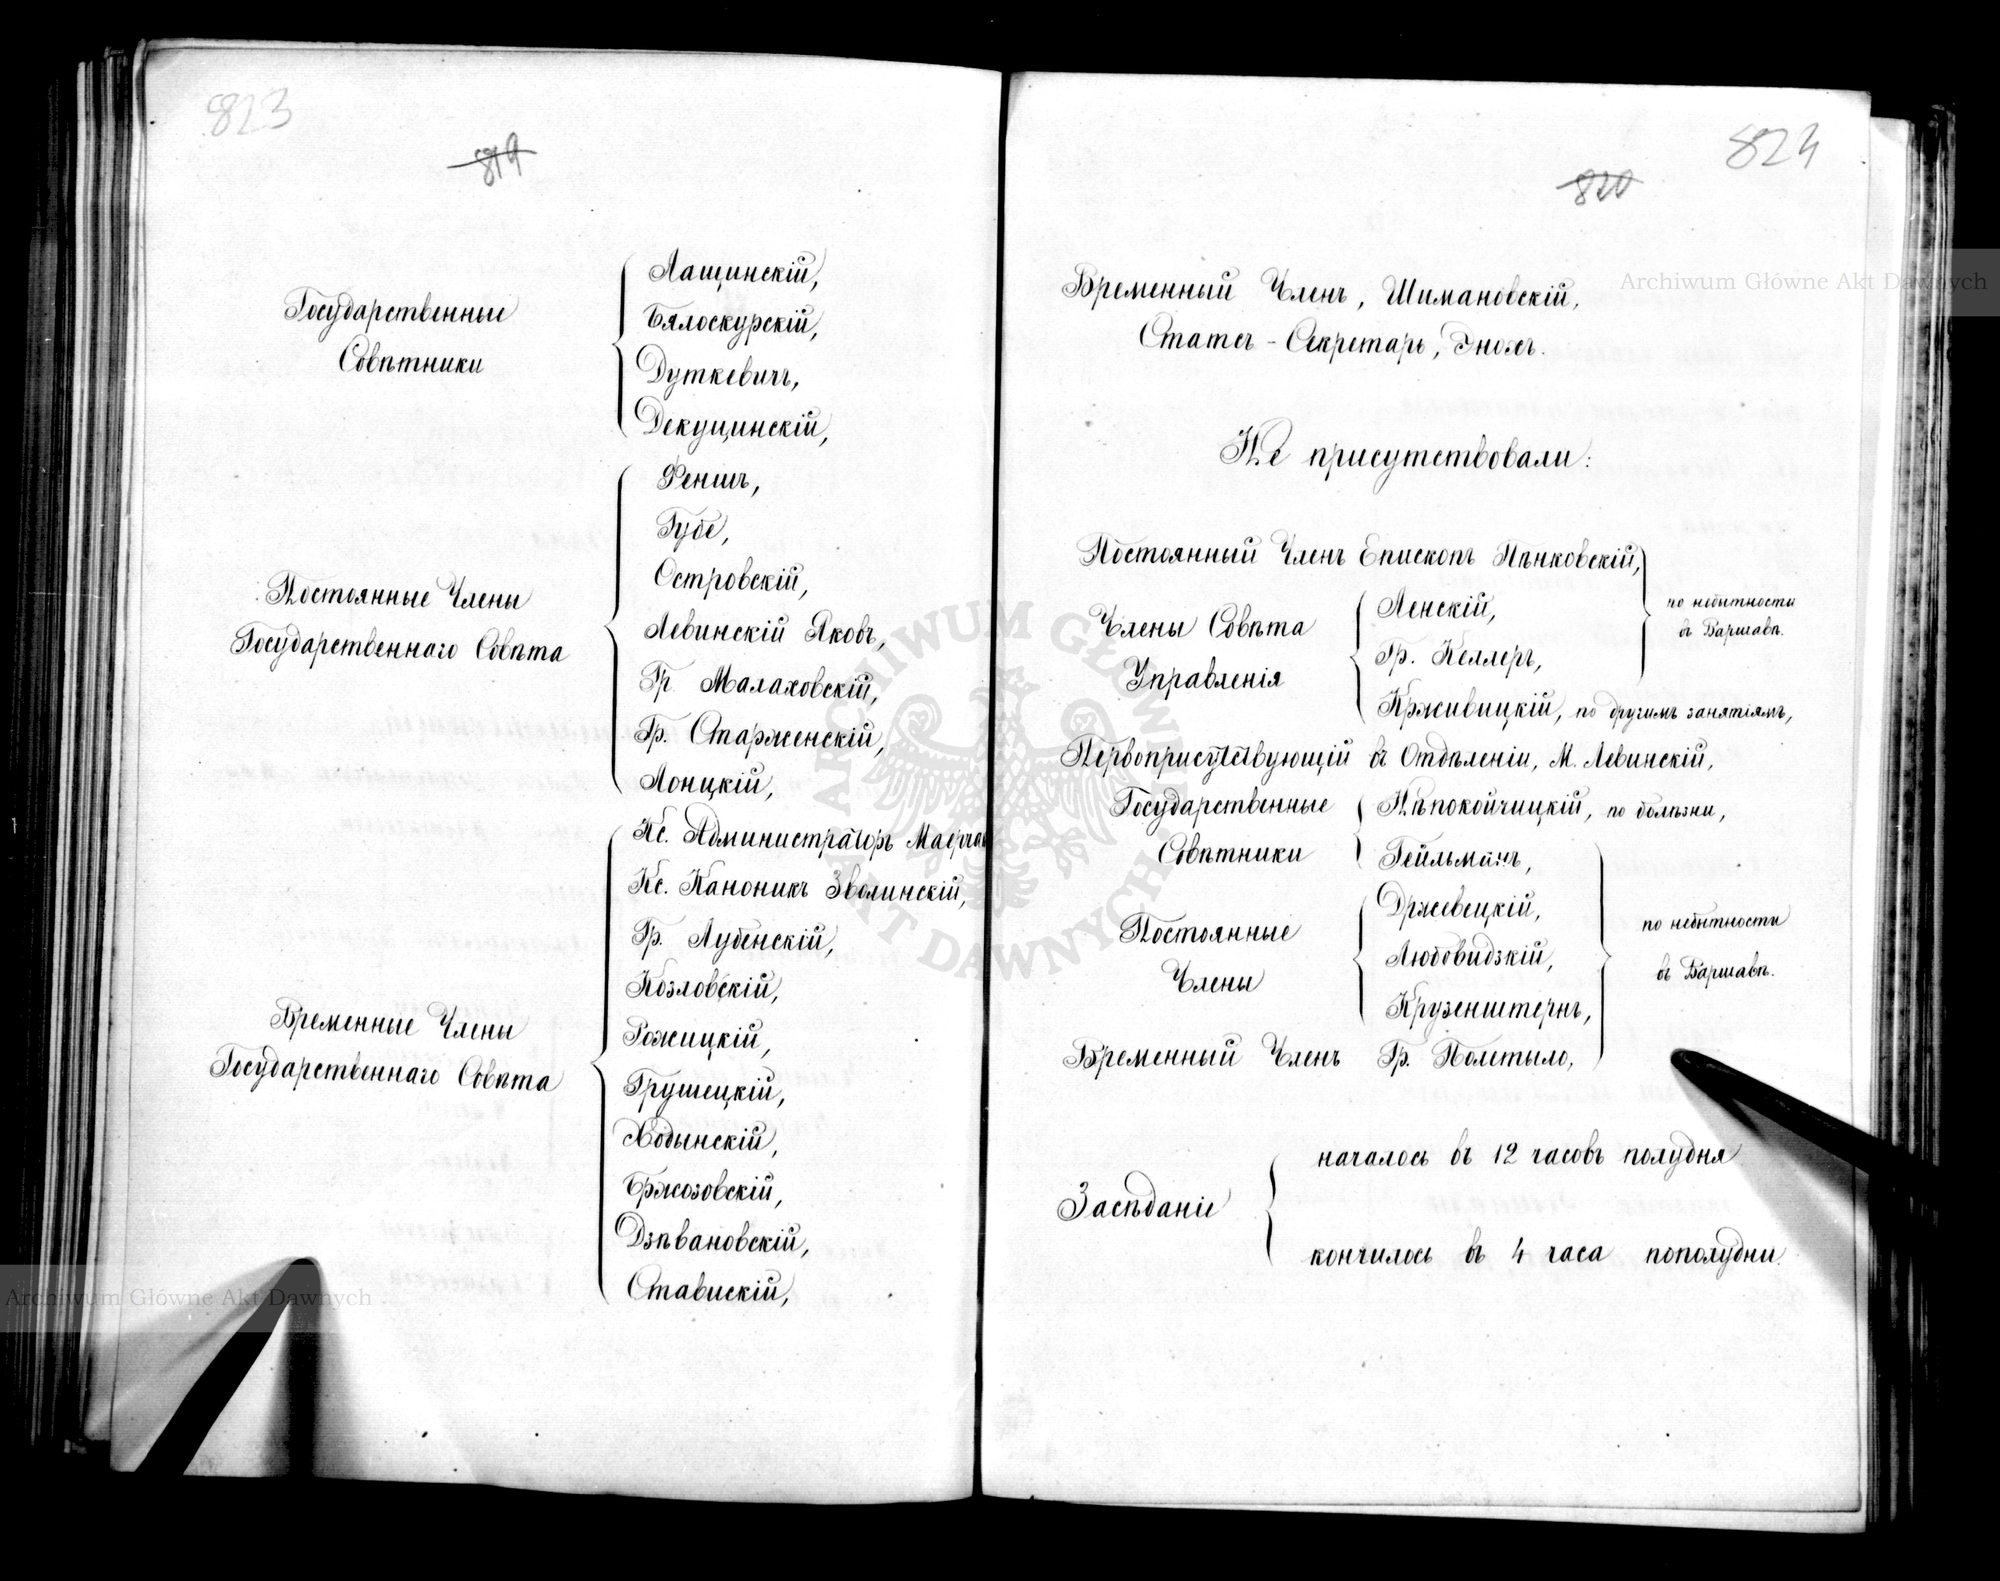 823
819
Государственные
Совѣтники
Лащинскій,
Бялоскурскій,
Дуткевичъ,
Декуцинскій,
Постоянные Члены
Государственнаго Совѣта
Феншъ,
Губе,
Островскій,
Левинскій Яковъ,
Гр. Малаховскій,
Гр. Старженскій,
Лонцкій,
Временные Члены
Государственнаго Совѣта
Кс. Администраторъ
Кс. Каноникъ Зволинскій,
Гр. Лубенскій,
Козловскій,
Рожицкій,
Грушецкій,
Ходынскій,
Бржозовскій,
Дзѣвановскій,
Ставискій,
824
820
Временный Членъ, Шимановскій,
Статсъ-Секретарь, Энохъ.
Не присутствовали:
Постоянный Членъ Епископъ Пѣнковскій,
Члены Совѣта
Управленія
Ленскій,
Гр. Келлеръ,
по небытности
въ Варшавѣ.
Крживицкій, по другимъ занятіямъ,
Первоприсутствующій въ Отдѣленіи, М. Левинскій,
Государственные
Совѣтники
Нѣпокойчицкій, по болѣзни,
Гейльманъ,
Постоянные
Члены
Држевецкій,
Любовидзкій,
Крузенштернъ,
по небытности
въ Варшавѣ.
Временный Членъ Гр. Полетыло,
Засѣданіе
началось въ 12 часовъ полудня
кончилось въ 4 часа пополудни.
Archiwum Główne Akt Dawnych
Archiwum Główne Akt Dawnych
ARCHIWUM GŁÓWNE AKT DAWNYCH